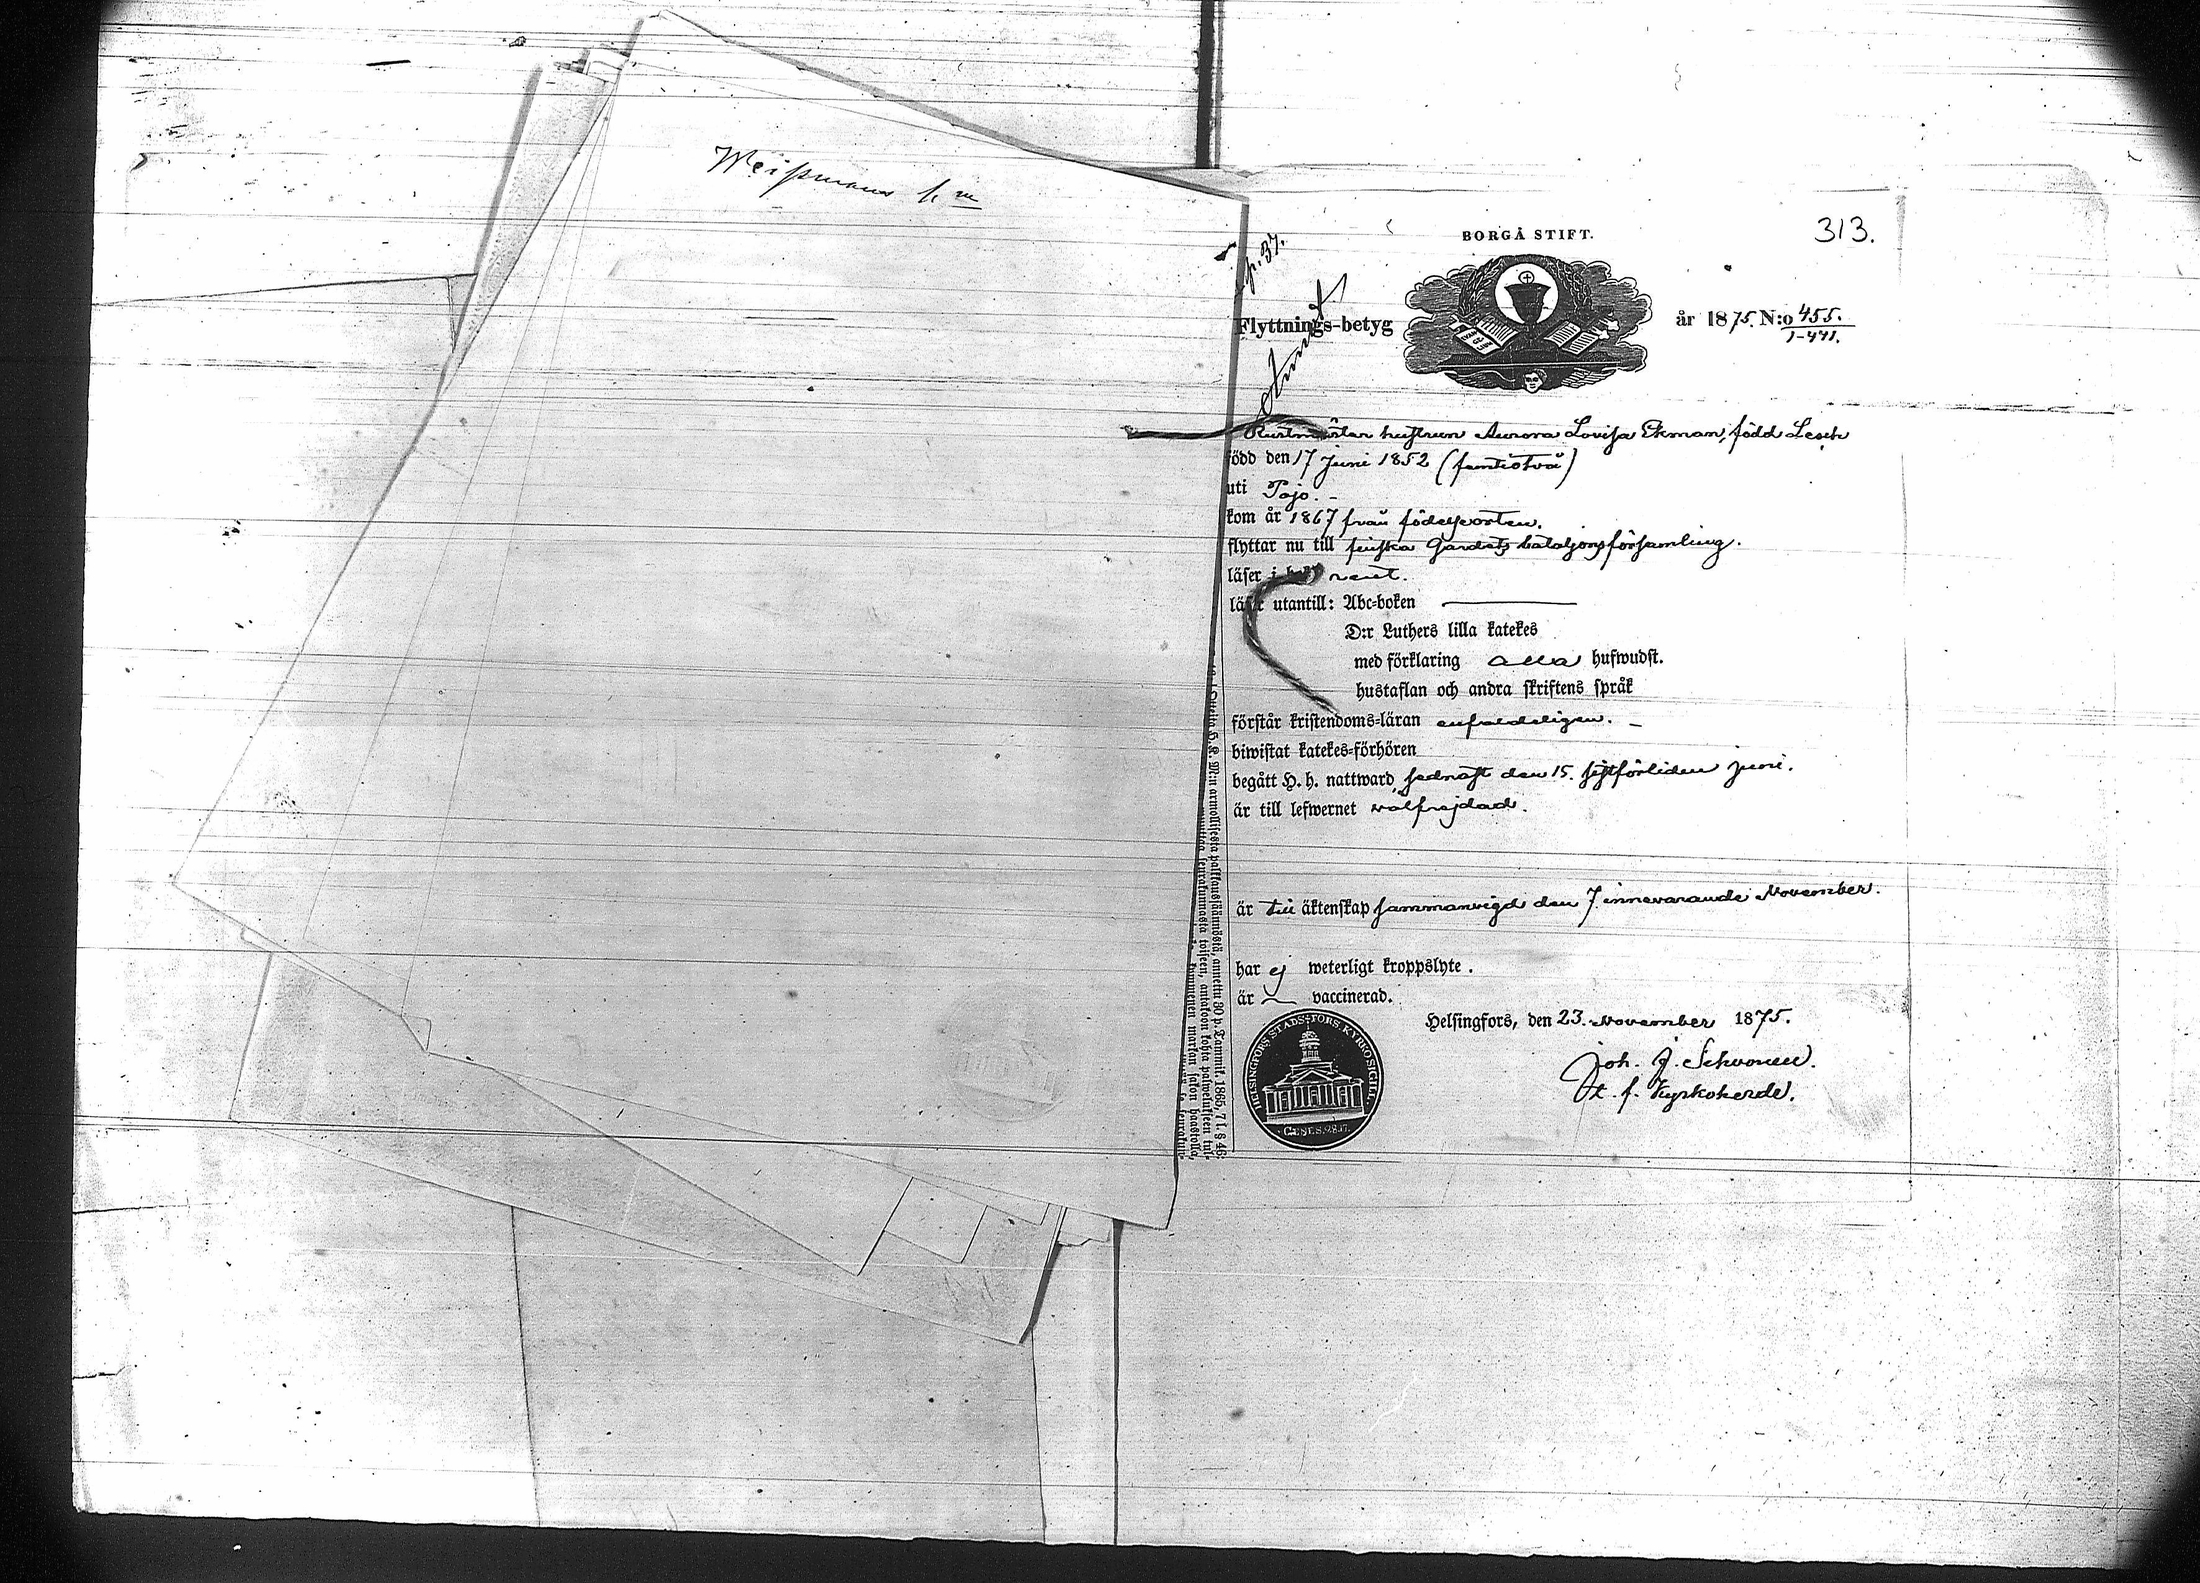 Weißmans h m
p. 37.
BORGÅ STIFT.
313.
Flyttnings-betyg
år 1875. N:o 455.
1-441.
Rustmästar hustrun Aurora Lovisa Ekman, född Lesch
född den 17 Juni 1852 (femtiotvå)
uti Pojo. -
kom år 1867 från födelseorten.
flyttar nu till finska Gardets bataljons församling.
läser i bok rent.
läser utantill: Abc-boken
D:r Luthers lilla katekes
med förklaring alla hufwudst.
hustaflan och andra skriftens språk
förstår kristendoms-läran enfaldeligen. -
biwistat katekes-förhören
begått H. h. nattward, sednast den 15. sistförliden Juni.
är till lefwernet välfrejdad.
är till äktenskap sammanvigd den 7. innevarande November.
har ej weterligt kroppslyte.
är vaccinerad.
Helsingfors, den 23. November 1875.
Joh. J. Schvonen.
t. f. Kyrkoherde.
HELSINGFORS STADS-FÖRS. KYRKO SIGILL.
GENES. 28. 17.
armollisesta palkkaussäännöstä, annettu 30 p. Tammik. 1865, 7 l. § 46: